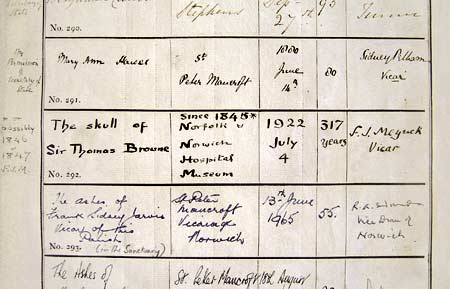 Stephens
27th
No. 290.
By
Permission
of
Secretary of
State
Mary Ann
St
Peter Mancroft
1880
June
14th
80
Sidney Pelham
Vicar
No. 291.
possibly
1846
or
1847
The skull of
Sir Thomas Browne
Since 1845*
Norfolk &
Norwich
Hospital
Museum
1922
July
4
317
years
F. J. Meyrick
Vicar
No. 292.
The ashes of
Frank Sidney Jarvis
Vicar of this
Parish
(in the Sanctuary)
St. Peter
Mancroft
Vicarage
Norwich
13th June
1965
55.
Vice Dean of
Norwich
No. 293.
The Ashes of
St. Peter Mancroft
18th August